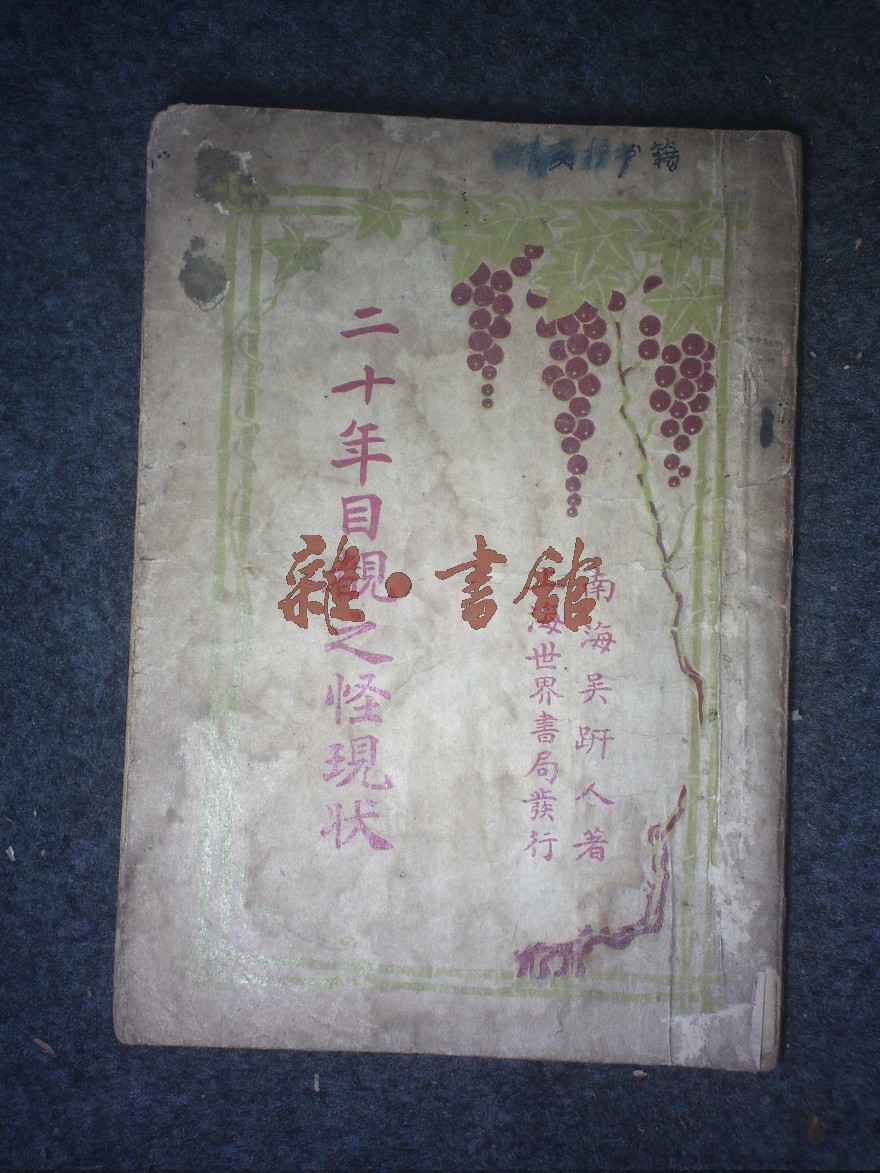 书籍
南海吳趼人著
上海世界書局發行
二十年目覩之怪現狀
雜·書館